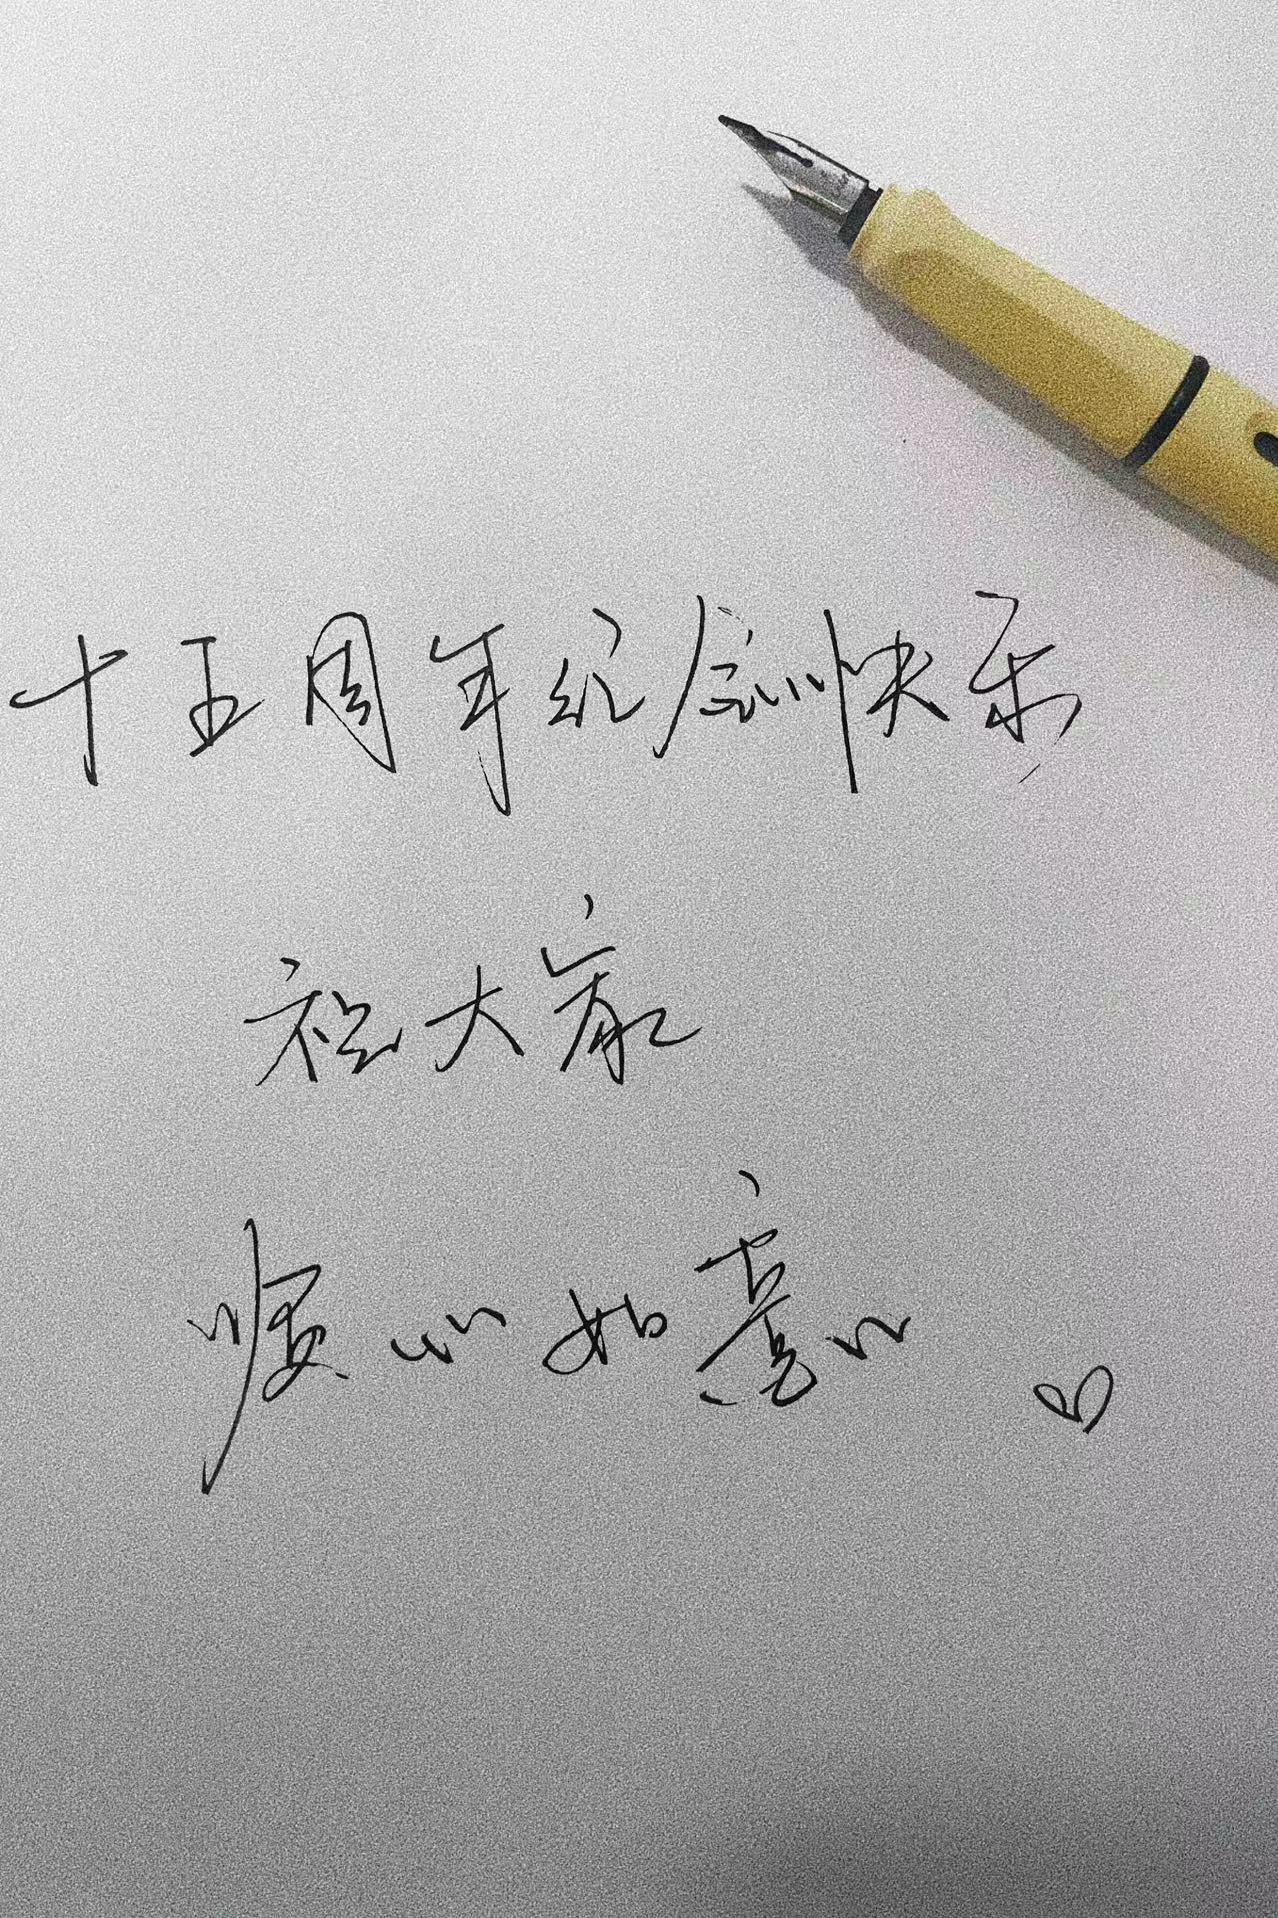 十五周年纪念快乐
祝大家
顺心如意